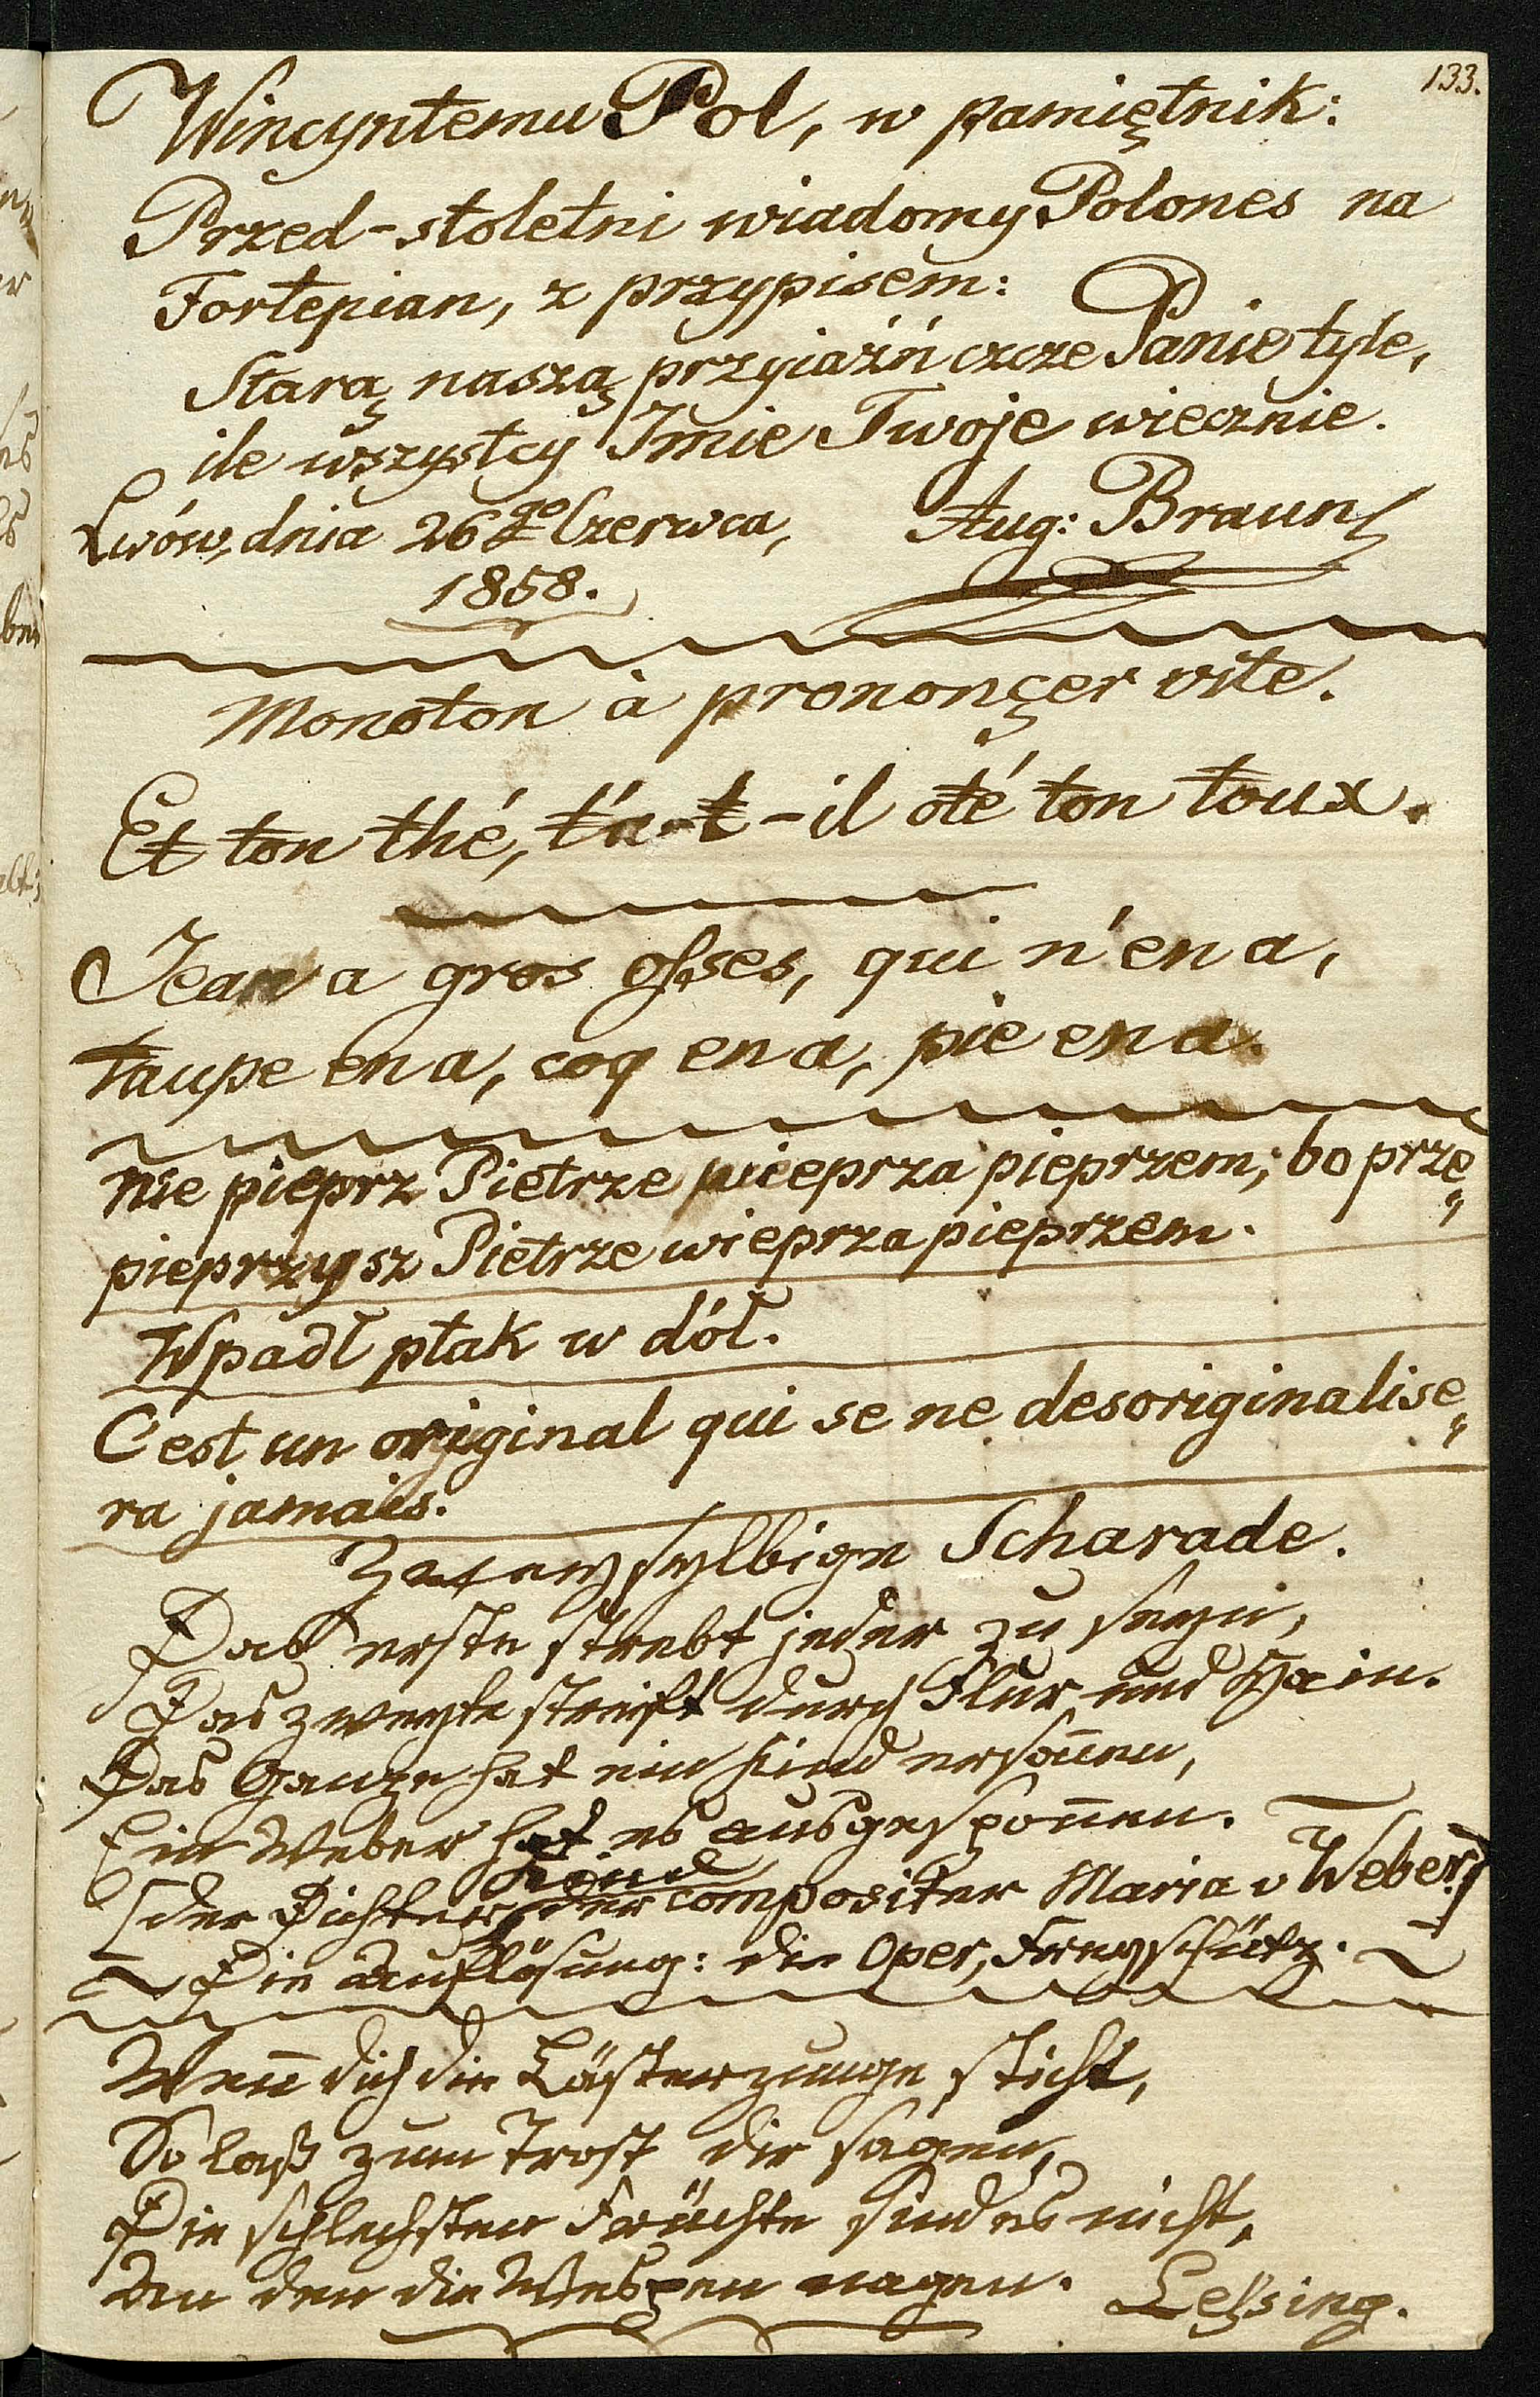 133.
Wincyntemu Pol, w pamiętnik:
Przed-stoletni wiadomy Polones na
Fortepian, z przypisem:
Starą naszą przyiaźń czcze Panie tyle,
ile wszystcy Jmie Twoje wiecznie.
Lwów, dnia 26go Czerwca, Aug: Braun
1858.
Monoton à prononçer vite.
Et ton thé, t'a-t-il oté ton toux.
Jean a gros osses, qui n'en a,
taupe en a, coq en a, pie en a.
Nie pieprz Pietrze wieprza pieprzem; bo prze„
pieprzysz Pietrze wieprza pieprzem.
Wpadł ptak w dół.
C'est un original qui se ne desoriginalise„
ra jamais.
Zweysylbige Scharade.
Das erste strebt jeder zu seyn,
Das zweyte streift durch Flur und Hain.
Das Ganze hat ein Kind ersoñen,
Ein Weber hat es ausgespoñen.
Kind
[der Dichter, der compositer Maria v Weber]
Die Auflösung: die Oper, Freyschütz.
Weñ dich die Lästerzunge sticht,
So laß zum Trost dir sagen,
Die schlechsten Früchte sind es nicht,
An den die Wespen nagen. Leßsing.